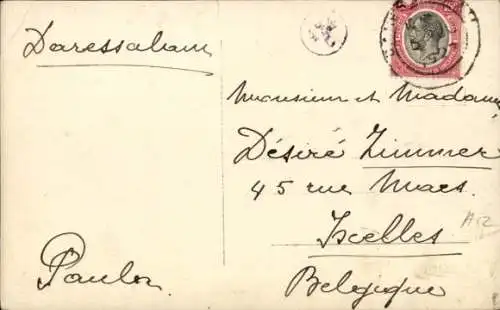 Daressalam
Monsieur et Madame
Désiré Zimmer
45 rue Maes.
Ixelles
Belgique